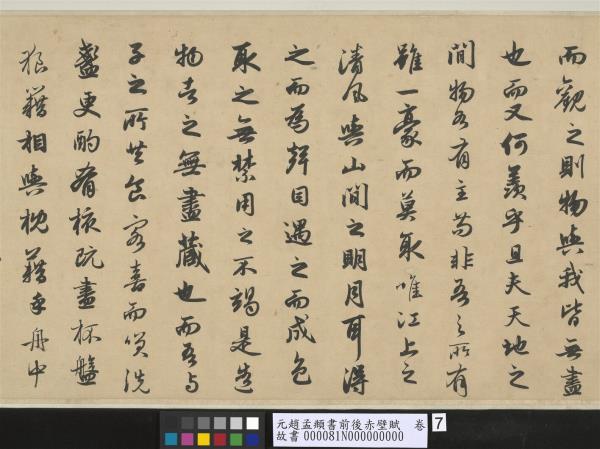 而觀之則物與我皆無盡
也而又何羨乎且夫天地之
間物各有主苟非吾之所有
雖一豪而莫取唯江上之
清風與山間之明月耳得
之而為聲目遇之而成色
取之無禁用之不竭是造
物者之無盡藏也而吾与
子之所共食客喜而笑洗
盞更酌肴核既盡杯盤
狼藉相與枕藉乎舟中
元趙孟頫書前後赤壁賦 卷 7
故書 000081N000000000